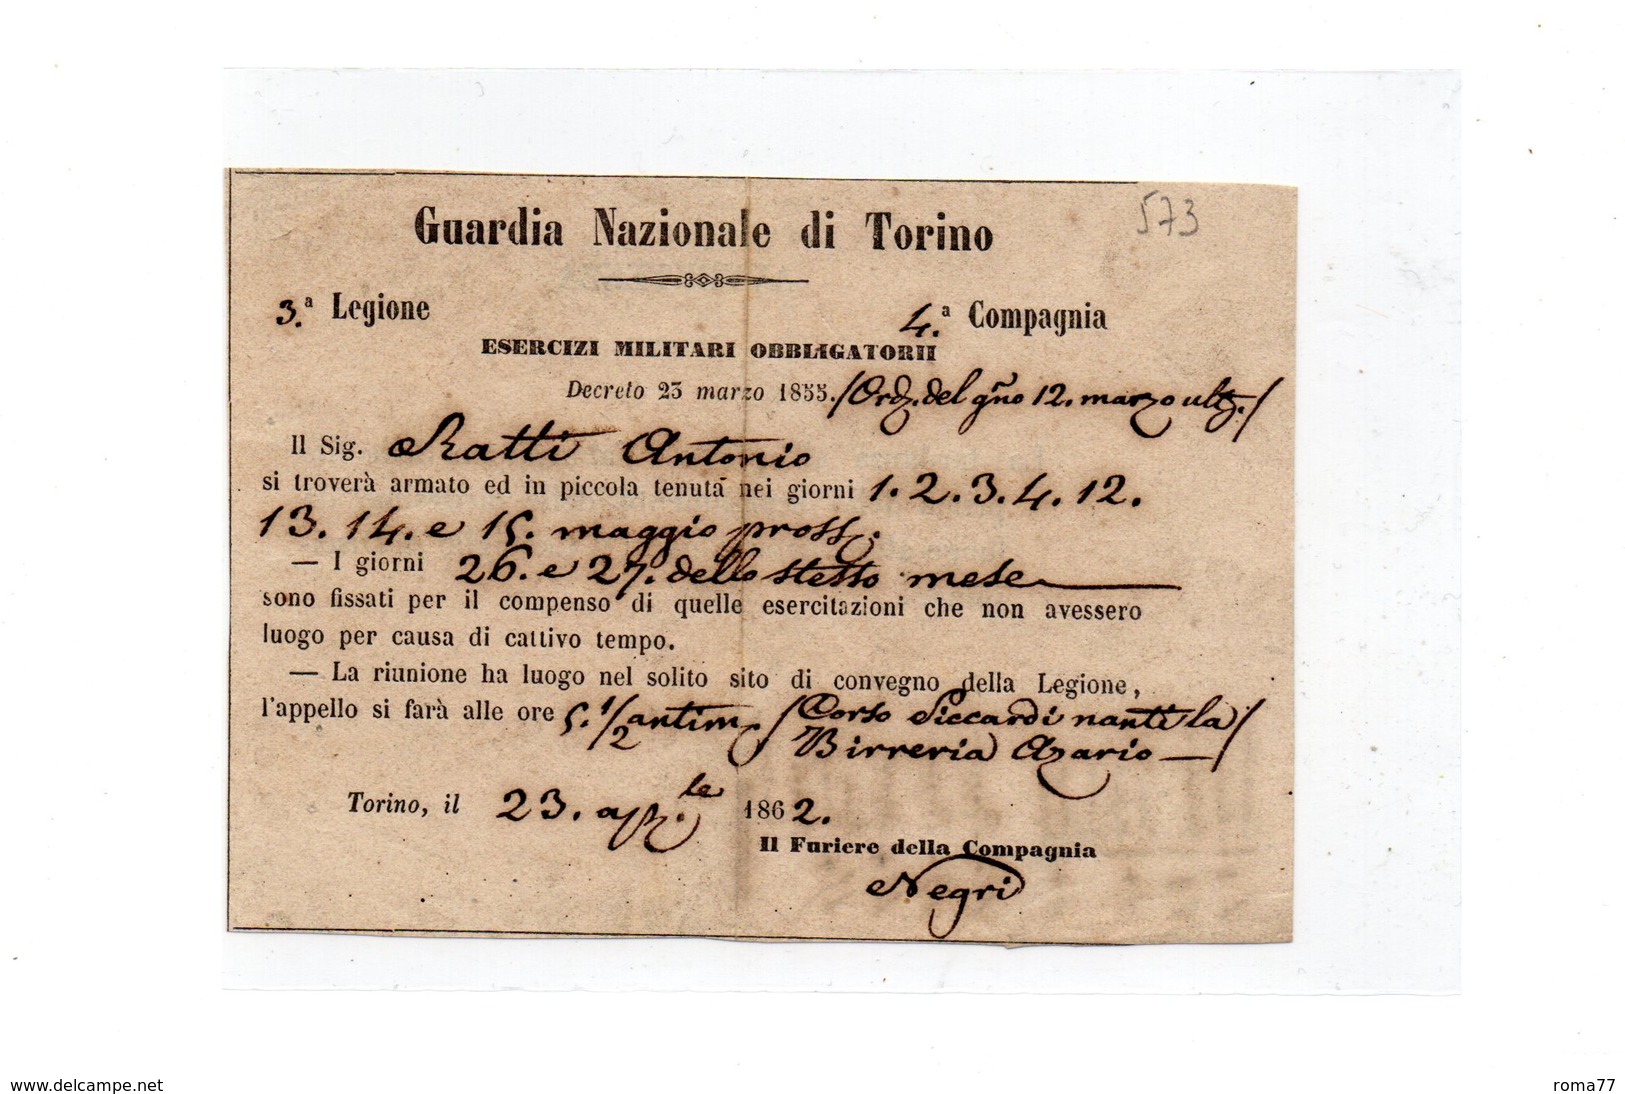 573
Guardia Nazionale di Torino
3.ª Legione 4.ª Compagnia
ESERCIZI MILITARI OBBLIGATORII
Decreto 23 marzo 1855. /Ord. del gno 12. marzo ult./
Il Sig. Ratti Antonio
si troverà armato ed in piccola tenuta nei giorni 1. 2. 3. 4. 12.
13. 14. e 15. maggio pross.
— I giorni 26. e 27. dello stesso mese
sono fissati per il compenso di quelle esercitazioni che non avessero
luogo per causa di cattivo tempo.
— La riunione ha luogo nel solito sito di convegno della Legione,
l'appello si farà alle ore 5. 1/2 antim. /Corso Siccardi nanti la/
Birreria Azario —/
Torino, il 23. aprle 1862.
Il Furiere della Compagnia
Negri
www.delcampe.net
roma77